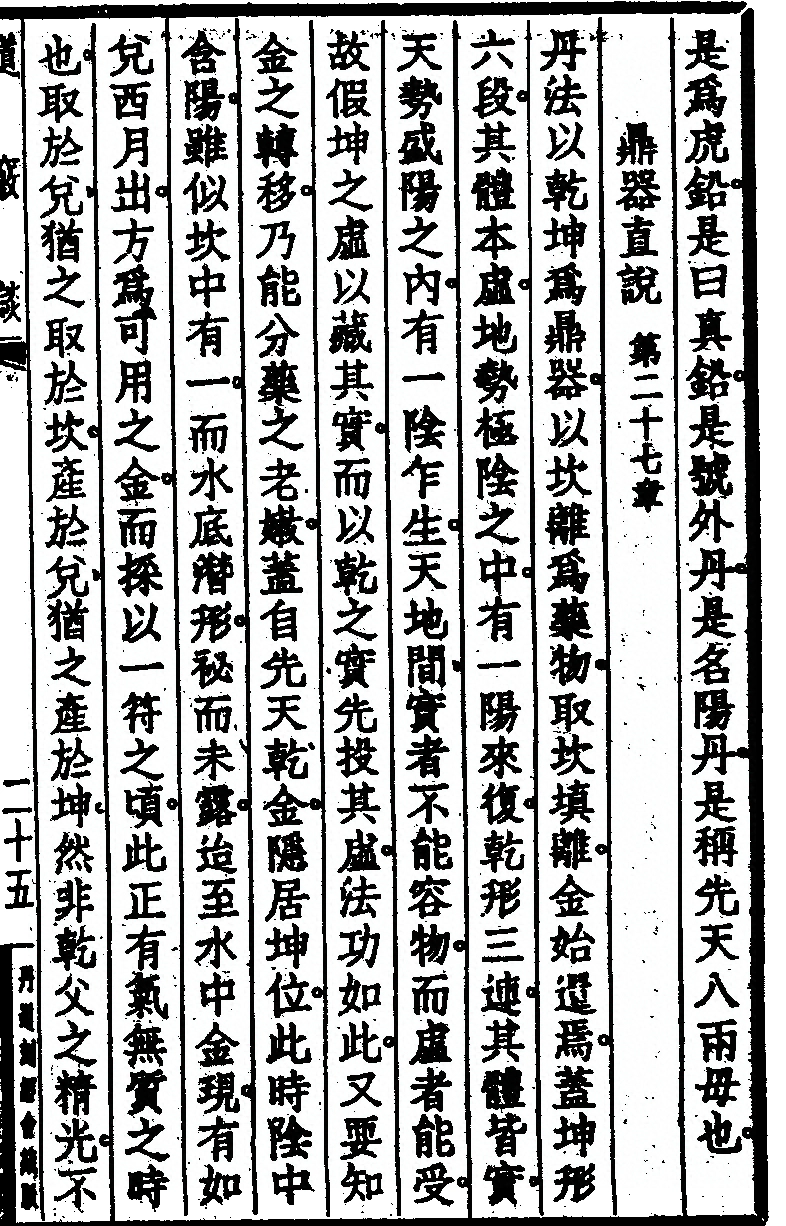 是爲虎鉛是曰真鉛是號外丹是名陽丹是稱先天八兩毋也
鼎器直說 第二十七章
丹法以乾坤爲鼎器以坎離爲藥物取坎填離金始還焉蓋坤形
六段其體本虛地勢極陰之中有一陽來復乾形三連其體皆實
天勢盛陽之內有一陰乍生天地間實者不能容物而虛者能受
故假坤之虛以藏其實而以乾之實先投其虛法功如此又要知
金之轉移乃能分藥之老嫩蓋自先天乾金隱居坤位此時陰中
含陽雖似坎中有一而水底潛形祕而未露迨至水中金現有如
兌西月出方爲可用之金而採以一符之頃此正有氣無質之時
也取於兌猶之取於坎產於兌猶之產於坤然非乾父之精光不
道 談
二十五